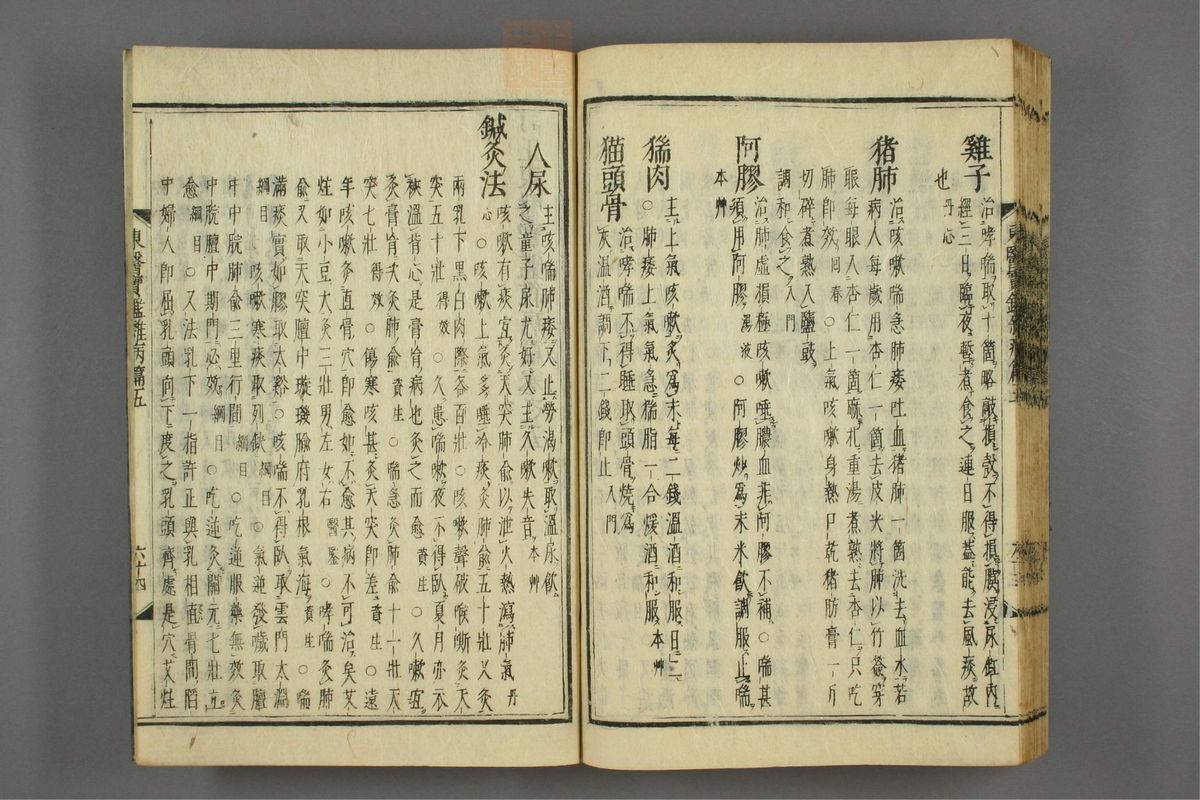 雞子治哮喘取十箇略敲損殼不得損膜浸尿缸內
經三日臨夜暫煮食之連日服蓋能去風痰故
也丹心
猪肺治咳嗽喘急肺痿吐血猪肺一箇洗去血水若
病人每歲用杏仁一箇去皮尖將肺以竹簽穿
眼每眼入杏仁一箇麻扎重湯煮熟去杏仁只吃
肺卽效回春○上氣咳嗽身熱尸乾猪肪膏一斤
切碎煮熟入鹽豉
調和食之入門
阿膠治肺虛損極咳嗽唾膿血非阿膠不補○喘甚
須用阿膠湯液○阿膠炒爲末米飮調服止喘
本艸
猯肉主上氣咳嗽炙爲末每二錢溫酒和服日二
○肺痿上氣氣急猯脂一合煖酒和服本艸
猫頭骨治哮喘不得睡取頭骨燒爲
灰溫酒調下二錢卽止入門
人尿主咳喘肺痿又止勞渴嗽取溫尿飮
之童子尿尤好又主久嗽失音本艸
鍼灸法咳嗽有痰宜灸天突肺俞以泄火熱瀉肺氣丹
心○咳嗽上氣多唾冷痰灸肺俞五十壯又灸
兩乳下黑白肉際各百壯○咳嗽聲破喉嘶灸天
突五十壯得效○久患喘嗽夜不得臥夏月亦不
袂溫背心是膏肓病也灸之而愈資生○久嗽宜
灸膏肓次灸肺俞資生○喘急灸肺俞十一壯天
突七壯得效○傷寒咳甚灸天突卽差資生○遠
年咳嗽灸直骨穴卽愈如不愈其病不可治矣艾
炷如小豆大灸三壯男左女右醫鑑○哮喘灸肺
俞又取天突膻中璇璣腧府乳根氣海資生○喘
滿痰實如膠取太谿○咳喘不得臥取雲門太淵
綱目○咳嗽寒痰取列缺綱目○氣逆發噦取膻
中中脘肺俞三里行間綱目○吃逆服藥無效灸
中脘膻中期門必效綱目○吃逆灸關元七壯立
愈綱目○又法乳下一指許正與乳相直骨間陷
中婦人卽屈乳頭向下度之乳頭齊處是穴艾炷
東醫寶鑑雜病篇五
六十四